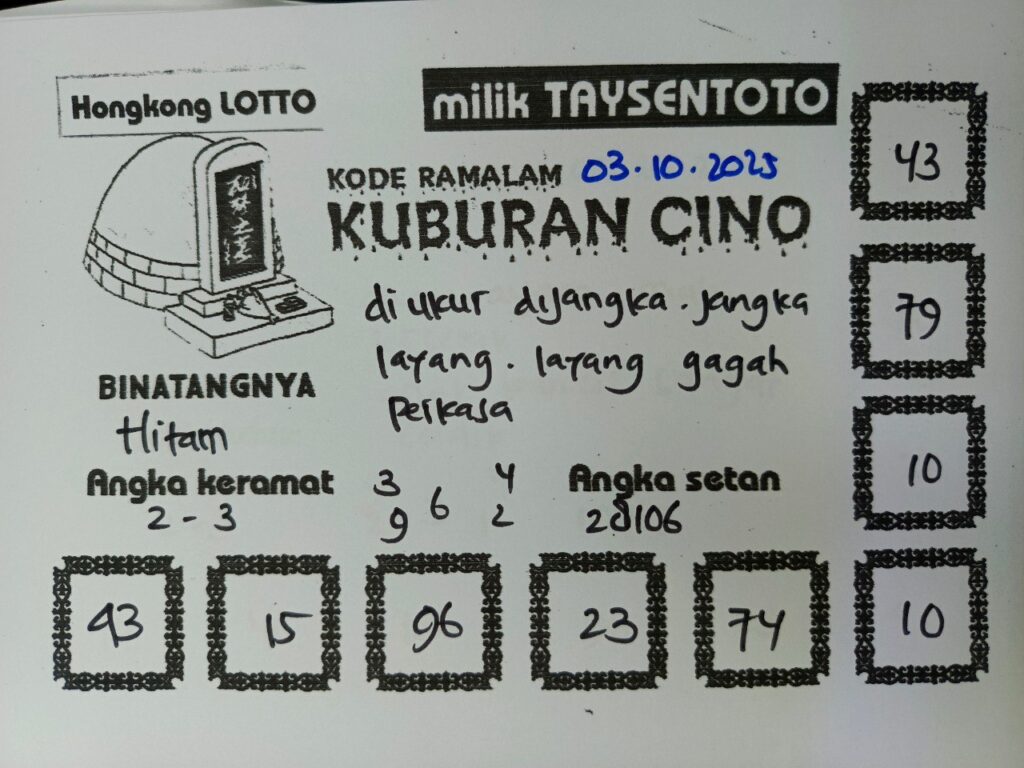 Hongkong LOTTO
milik TAYSENTOTO
KODE RAMALAM 03.10.2025
KUBURAN CINO
di ukur dijangka. jangka
layang. layang gagah
perkasa
BINATANGNYA
Hitam
Angka keramat
2 - 3
3 4
6
9 2
Angka setan
28106
43
79
10
10
43 15 96 23 74